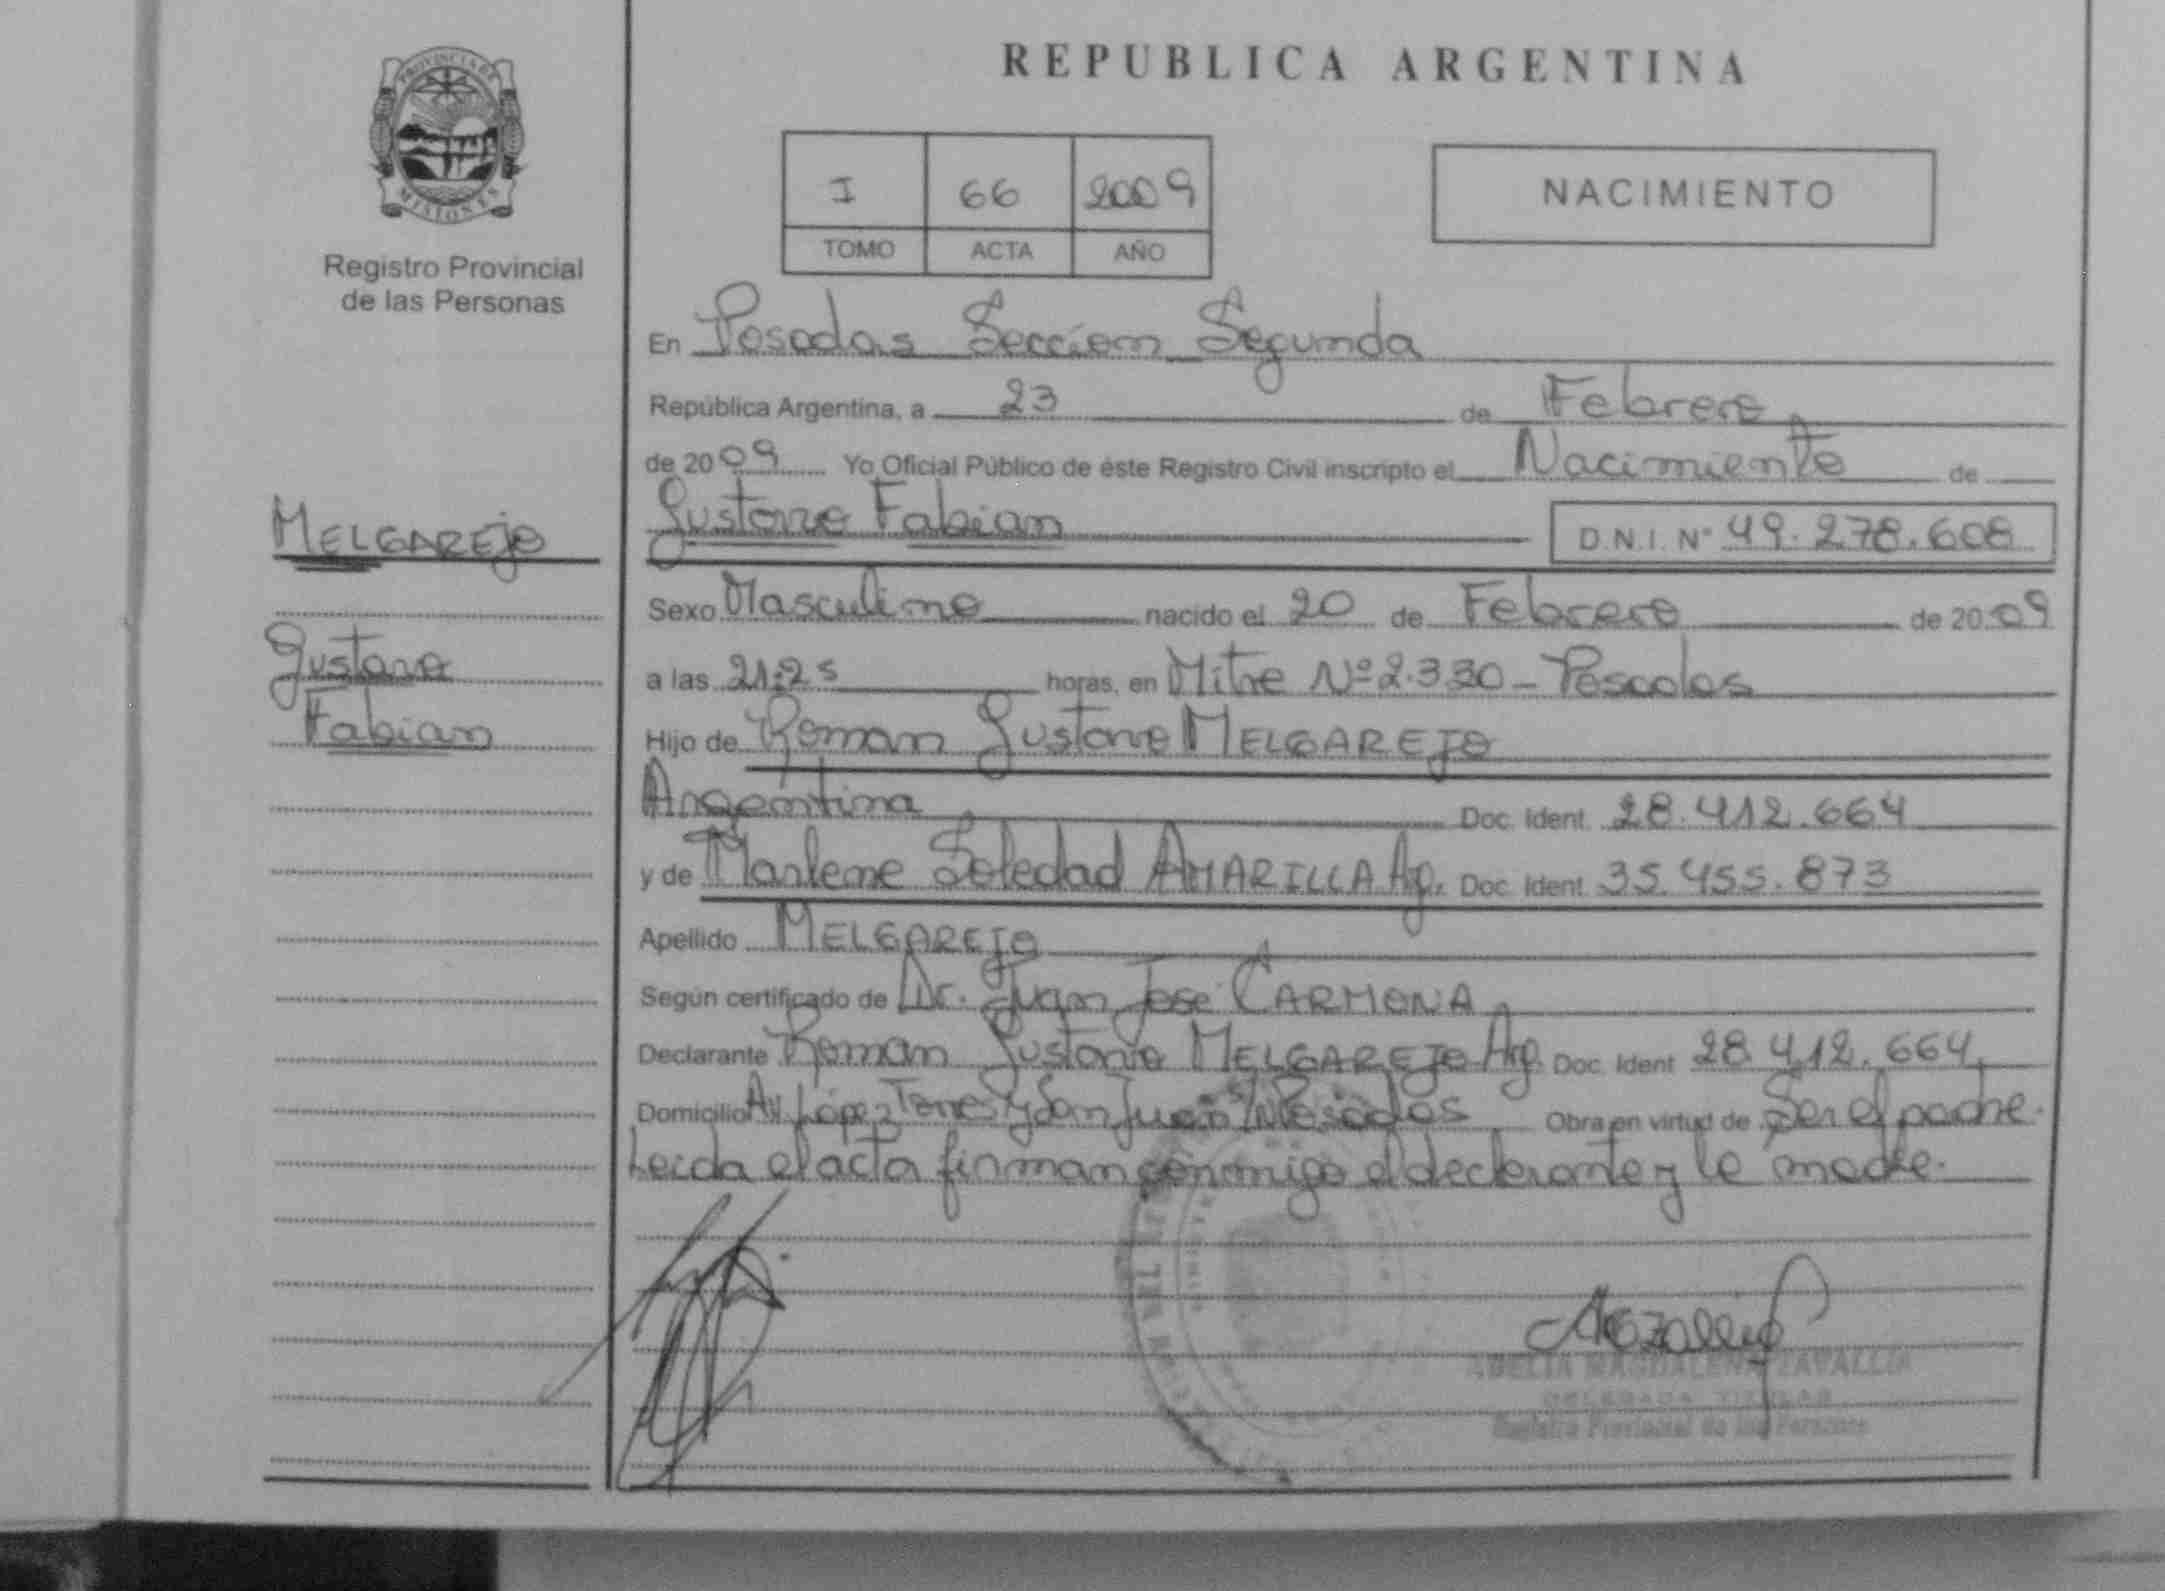 PROVINCIA DE
MISIONES
Registro Provincial
de las Personas
MELGAREJO
Gustavo
Fabian
REPUBLICA ARGENTINA
I 66 2009
TOMO ACTA AÑO
NACIMIENTO
En Posadas Seccion Segunda
República Argentina, a 23 de Febrero
de 2009 Yo Oficial Público de éste Registro Civil inscripto el Nacimiento de
Gustavo Fabian D.N.I. Nº 49.278.608
Sexo Masculino nacido el 20 de Febrero de 2009
a las 21:25 horas, en Mitre Nº 2.330 - Posadas
Hijo de Roman Gustavo MELGAREJO
Argentina Doc. Ident. 28.412.664
y de Marlene Soledad AMARILLA Arg. Doc. Ident. 35.455.873
Apellido MELGAREJO
Según certificado de Dr. Juan Jose CARMONA
Declarante Roman Gustavo MELGAREJO Arg. Doc. Ident. 28.412.664
Domicilio Av. López Torres y San Juan S/Nº Posadas Obra en virtud de Ser el padre.
Leida el acta firman conmigo el declarante y la madre.
ADELIA MAGDALENA ZAVALLIA
DELEGADA TITULAR
Registro Provincial de las Personas